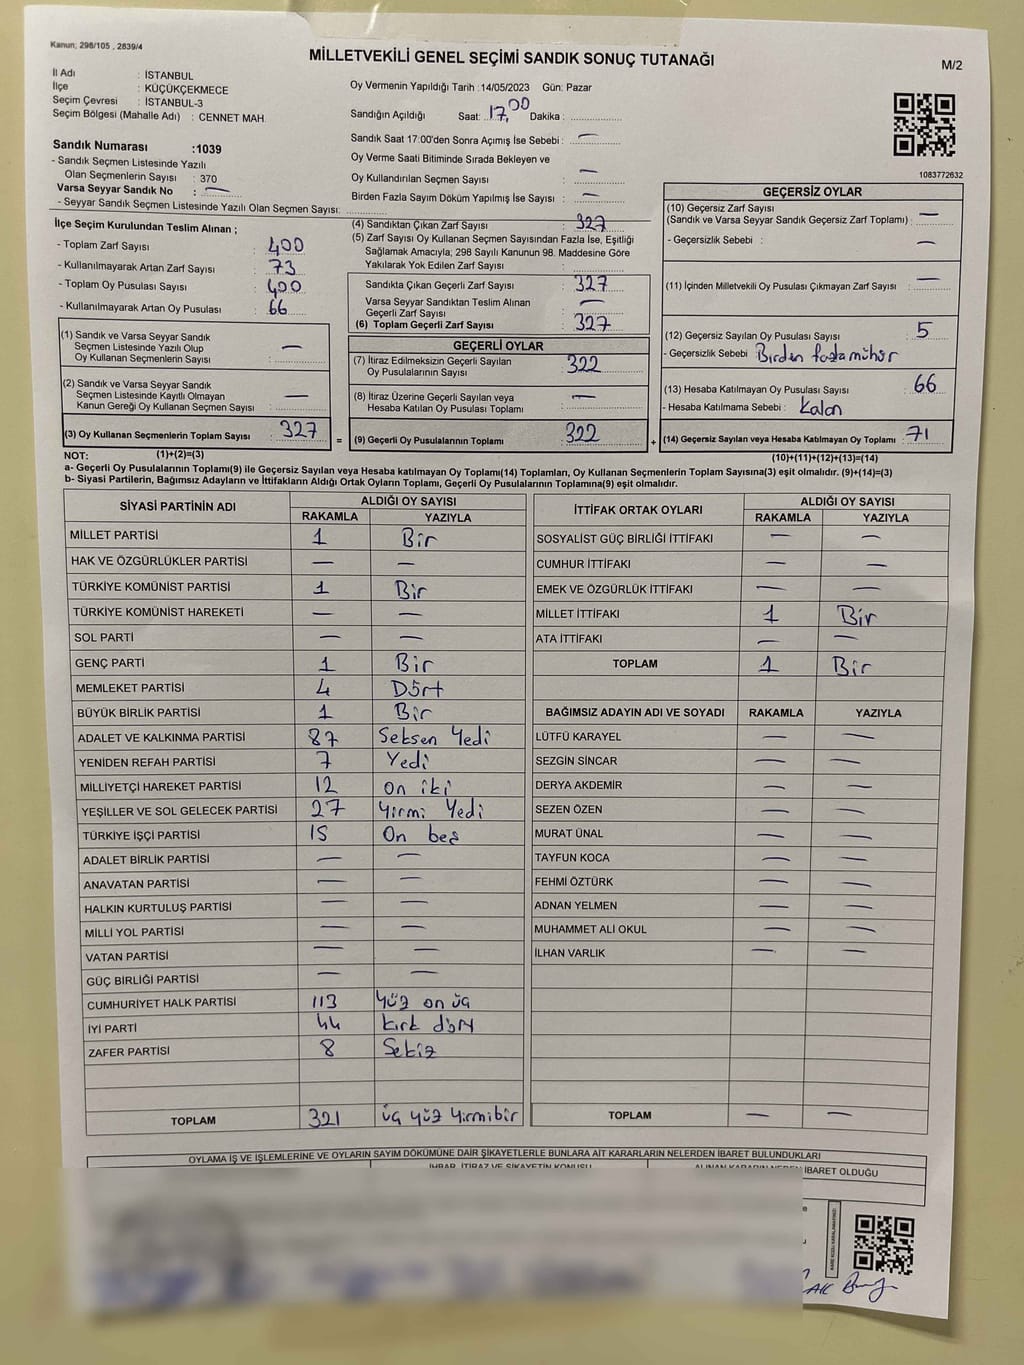 Kanun; 298/105 , 2839/4
MİLLETVEKİLİ GENEL SEÇİMİ SANDIK SONUÇ TUTANAĞI
M/2
İl Adı : İSTANBUL
İlçe : KÜÇÜKÇEKMECE
Seçim Çevresi : İSTANBUL-3
Seçim Bölgesi (Mahalle Adı) : CENNET MAH.
Oy Vermenin Yapıldığı Tarih :14/05/2023 Gün: Pazar
Sandığın Açıldığı Saat: 17,00 Dakika :
Sandık Saat 17:00'den Sonra Açımış İse Sebebi : —
Oy Verme Saati Bitiminde Sırada Bekleyen ve
Oy Kullandırılan Seçmen Sayısı : —
Birden Fazla Sayım Döküm Yapılmış İse Sayısı : —
1083772632
Sandık Numarası :1039
- Sandık Seçmen Listesinde Yazılı
Olan Seçmenlerin Sayısı : 370
Varsa Seyyar Sandık No : —
- Seyyar Sandık Seçmen Listesinde Yazılı Olan Seçmen Sayısı:
İlçe Seçim Kurulundan Teslim Alınan ;
- Toplam Zarf Sayısı : 400
- Kullanılmayarak Artan Zarf Sayısı : 73
- Toplam Oy Pusulası Sayısı : 400
- Kullanılmayarak Artan Oy Pusulası : 66
(1) Sandık ve Varsa Seyyar Sandık
Seçmen Listesinde Yazılı Olup
Oy Kullanan Seçmenlerin Sayısı : —
(2) Sandık ve Varsa Seyyar Sandık
Seçmen Listesinde Kayıtlı Olmayan
Kanun Gereği Oy Kullanan Seçmen Sayısı : —
(3) Oy Kullanan Seçmenlerin Toplam Sayısı : 327
(4) Sandıktan Çıkan Zarf Sayısı : 327
(5) Zarf Sayısı Oy Kullanan Seçmen Sayısından Fazla İse, Eşitliği
Sağlamak Amacıyla; 298 Sayılı Kanunun 98. Maddesine Göre
Yakılarak Yok Edilen Zarf Sayısı :
Sandıkta Çıkan Geçerli Zarf Sayısı : 327
Varsa Seyyar Sandıktan Teslim Alınan
Geçerli Zarf Sayısı : —
(6) Toplam Geçerli Zarf Sayısı : 327
GEÇERLİ OYLAR
(7) İtiraz Edilmeksizin Geçerli Sayılan
Oy Pusulalarının Sayısı : 322
(8) İtiraz Üzerine Geçerli Sayılan veya
Hesaba Katılan Oy Pusulası Toplamı : —
= (9) Geçerli Oy Pusulalarının Toplamı : 322
GEÇERSİZ OYLAR
(10) Geçersiz Zarf Sayısı
(Sandık ve Varsa Seyyar Sandık Geçersiz Zarf Toplamı) : —
- Geçersizlik Sebebi : —
(11) İçinden Milletvekili Oy Pusulası Çıkmayan Zarf Sayısı : —
(12) Geçersiz Sayılan Oy Pusulası Sayısı : 5
- Geçersizlik Sebebi : Birden fazla mühür
(13) Hesaba Katılmayan Oy Pusulası Sayısı : 66
- Hesaba Katılmama Sebebi : Kalan
+ (14) Geçersiz Sayılan veya Hesaba Katılmayan Oy Toplamı : 71
NOT: (1)+(2)=(3) (10)+(11)+(12)+(13)=(14)
a- Geçerli Oy Pusulalarının Toplamı(9) ile Geçersiz Sayılan veya Hesaba katılmayan Oy Toplamı(14) Toplamları, Oy Kullanan Seçmenlerin Toplam Sayısına(3) eşit olmalıdır. (9)+(14)=(3)
b- Siyasi Partilerin, Bağımsız Adayların ve İttifakların Aldığı Ortak Oyların Toplamı, Geçerli Oy Pusulalarının Toplamına(9) eşit olmalıdır.
SİYASİ PARTİNİN ADI ALDIĞI OY SAYISI
RAKAMLA YAZIYLA
MİLLET PARTİSİ 1 Bir
HAK VE ÖZGÜRLÜKLER PARTİSİ — —
TÜRKİYE KOMÜNİST PARTİSİ 1 Bir
TÜRKİYE KOMÜNİST HAREKETİ — —
SOL PARTİ — —
GENÇ PARTİ 1 Bir
MEMLEKET PARTİSİ 4 Dört
BÜYÜK BİRLİK PARTİSİ 1 Bir
ADALET VE KALKINMA PARTİSİ 87 Seksen Yedi
YENİDEN REFAH PARTİSİ 7 Yedi
MİLLİYETÇİ HAREKET PARTİSİ 12 On iki
YEŞİLLER VE SOL GELECEK PARTİSİ 27 Yirmi Yedi
TÜRKİYE İŞÇİ PARTİSİ 15 On beş
ADALET BİRLİK PARTİSİ — —
ANAVATAN PARTİSİ — —
HALKIN KURTULUŞ PARTİSİ — —
MİLLİ YOL PARTİSİ — —
VATAN PARTİSİ — —
GÜÇ BİRLİĞİ PARTİSİ — —
CUMHURİYET HALK PARTİSİ 113 Yüz on üç
İYİ PARTİ 44 Kırk dört
ZAFER PARTİSİ 8 Sekiz
TOPLAM 321 Üç yüz Yirmibir
İTTİFAK ORTAK OYLARI ALDIĞI OY SAYISI
RAKAMLA YAZIYLA
SOSYALİST GÜÇ BİRLİĞİ İTTİFAKI — —
CUMHUR İTTİFAKI — —
EMEK VE ÖZGÜRLÜK İTTİFAKI — —
MİLLET İTTİFAKI 1 Bir
ATA İTTİFAKI — —
TOPLAM 1 Bir
BAĞIMSIZ ADAYIN ADI VE SOYADI RAKAMLA YAZIYLA
LÜTFÜ KARAYEL — —
SEZGİN SİNCAR — —
DERYA AKDEMİR — —
SEZEN ÖZEN — —
MURAT ÜNAL — —
TAYFUN KOCA — —
FEHMİ ÖZTÜRK — —
ADNAN YELMEN — —
MUHAMMET ALİ OKUL — —
İLHAN VARLIK — —
TOPLAM — —
OYLAMA İŞ VE İŞLEMLERİNE VE OYLARIN SAYIM DÖKÜMÜNE DAİR ŞİKAYETLERLE BUNLARA AİT KARARLARIN NELERDEN İBARET BULUNDUKLARI
İHBAR, İTİRAZ VE ŞİKAYETİN KONUSU ALINAN KARARIN NEDEN İBARET OLDUĞU